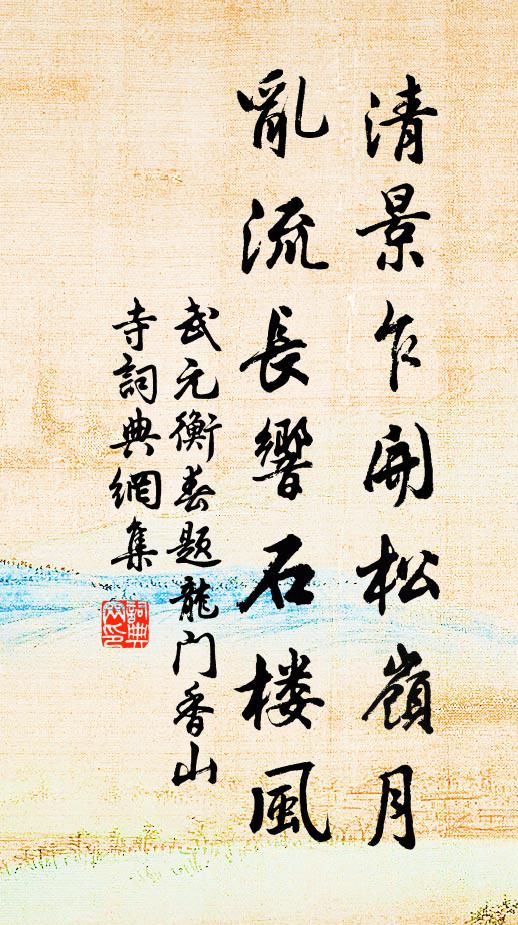 清景乍開松嶺月
亂流長響石楼風
武元衡春题龍门香山
寺詞典網集
詞典網印